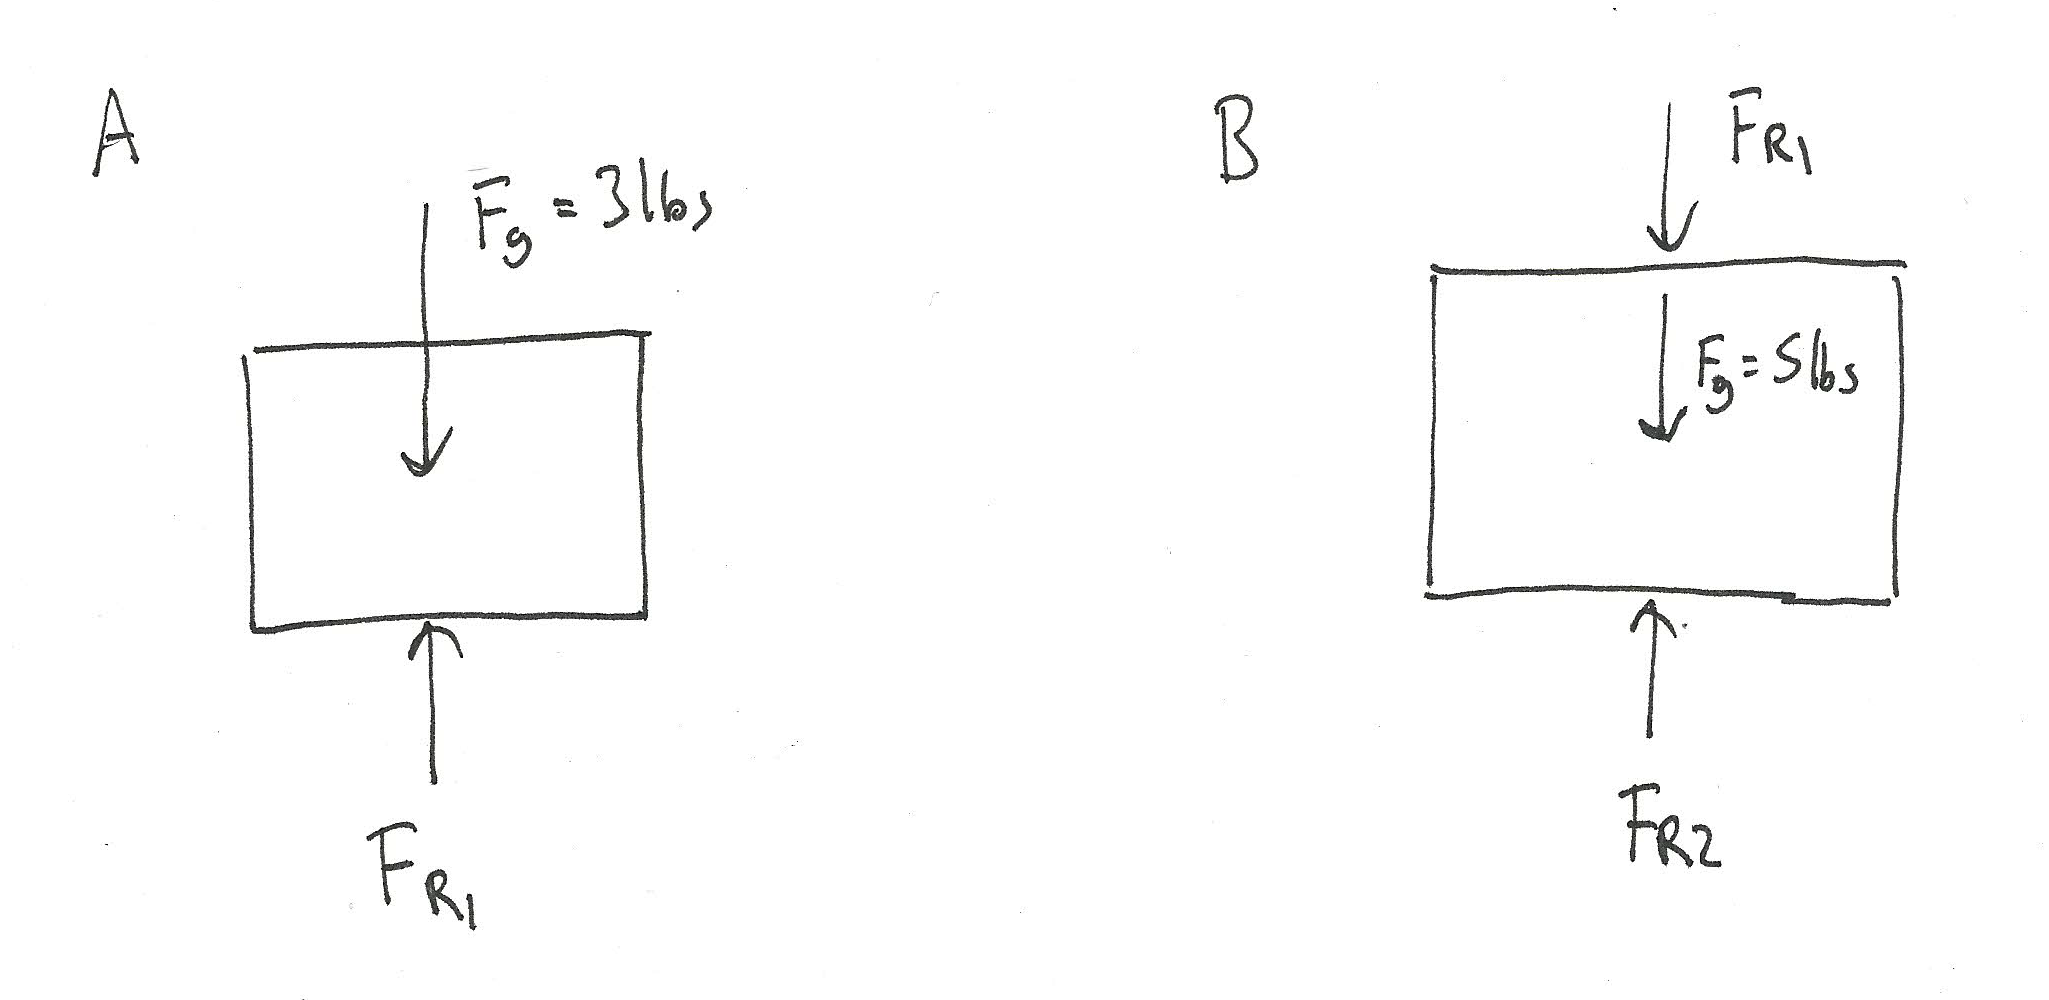 A
Fg = 3lbs
FR1
B
FR1
Fg = 5lbs
FR2